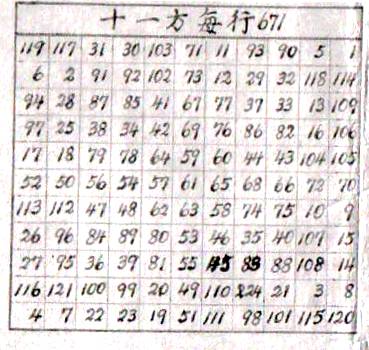 十一方每行671
119 117 31 30 103 71 11 93 90 5 1
6 2 91 92 102 73 12 29 32 118 114
94 28 87 85 41 67 77 37 33 13 109
97 25 38 34 42 69 76 86 82 16 106
17 18 79 78 64 59 60 44 43 104 105
52 50 56 54 57 61 65 68 66 72 70
113 112 47 48 62 63 58 74 75 10 9
26 96 84 89 80 53 46 35 40 107 15
27 95 36 39 81 55 45 83 88 108 14
116 121 100 99 20 49 110 24 21 3 8
4 7 22 23 19 51 111 98 101 115 120